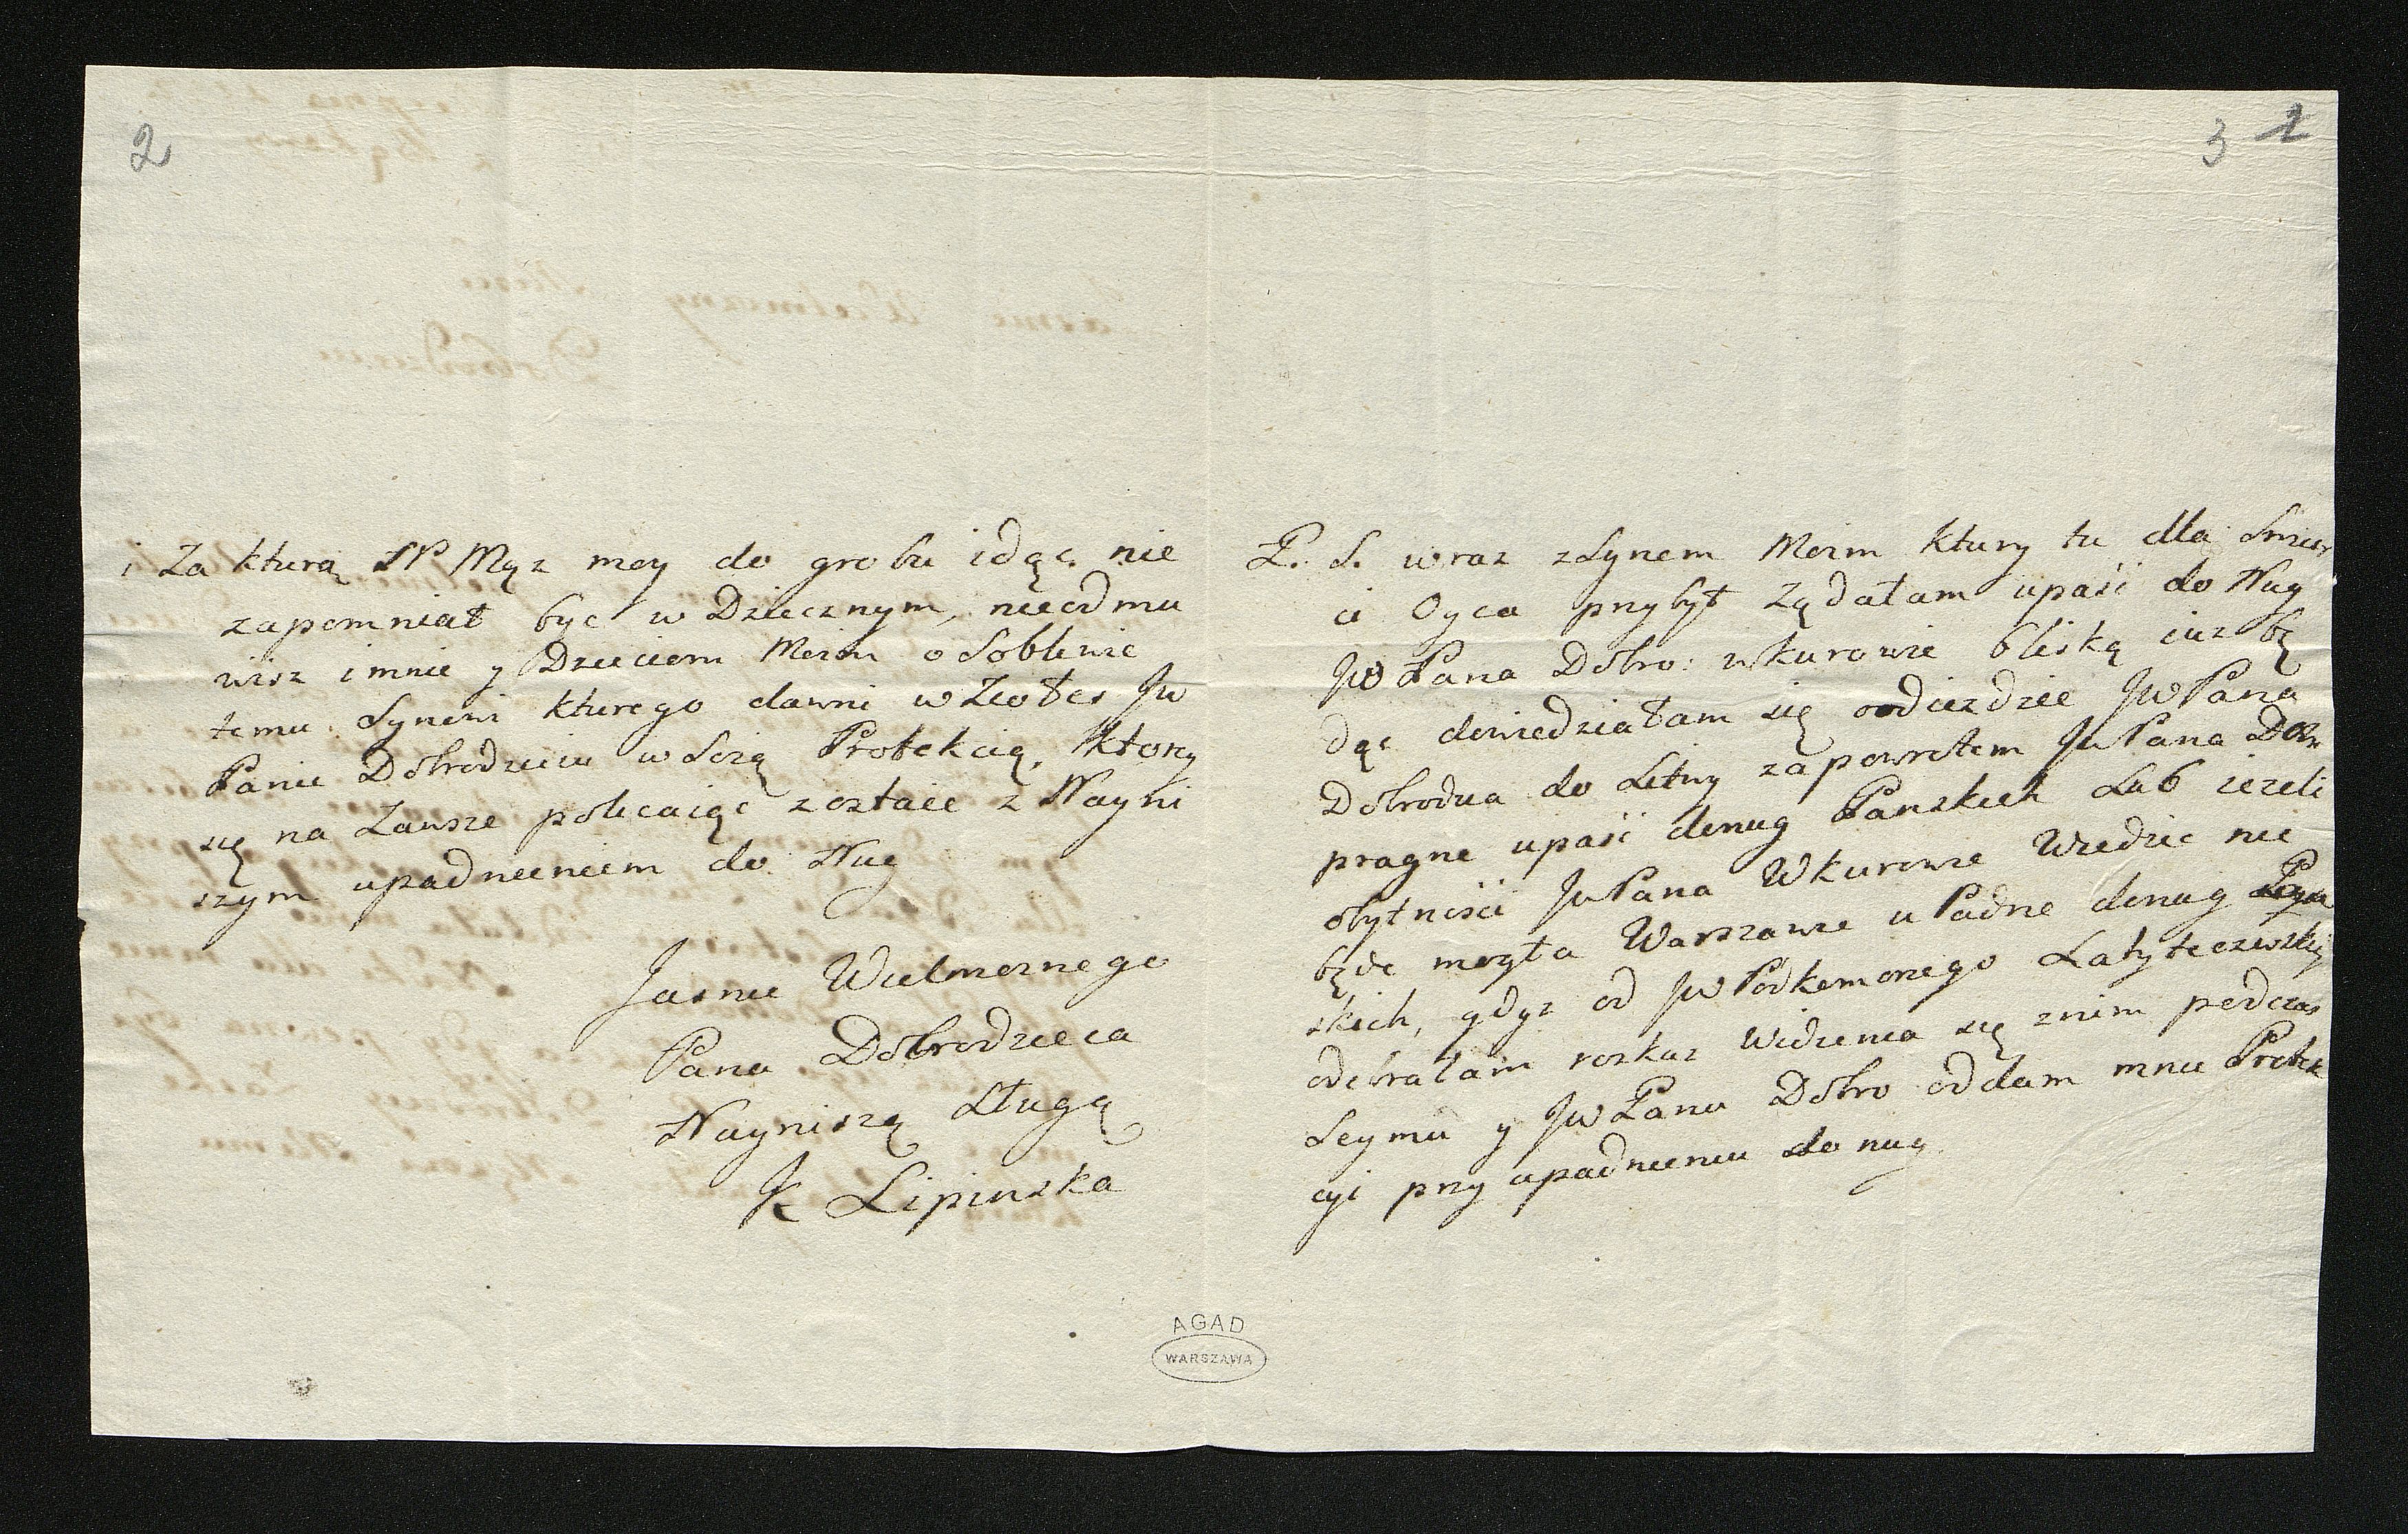 2
i Za kturą SP Mąz moy do grobu idąc nie
zapomniał byc w Dziecznym, nieodmu
wisz i mnie y Dzieciom Moim osobliwie
temu Synowi kturego dawni wziołes Jw
Panie Dobrodzieiu w Soią Protekcią, ktory
się na zawsze polecaiąc zostaie z Nayni
szym upadnieniem do Nug
Jasnie Wielmoznego
Pana Dobrodzieia
Nayniszą Sługą
K Lipinska
3 2
P. S. wraz z Synem Moim ktury tu dla Smier
ci Oyca przybył Ządałam upaść do Nug
JW Pana Dobro: w kurowie bliską iuz bę
dąc dowiedziałam się o odiezdzie JW Pana
Dobrodzia do Litwy za powrotem JW Pana Dobr
pragne upaść do nug Panskich Lub iezeli
obytnosci JW Pana W kurowie Wiedzic nie
będe mogła Warszawie u Padne do nug Pan
skich, gdyz od JW Podkomorzego Latyczewskij
odebrałam rozkaz Widzenia się z nim podczas
Seymu y JW Panu Dobro oddam mnie Protek
cyi przy upadnieniu do nug
AGAD
WARSZAWA